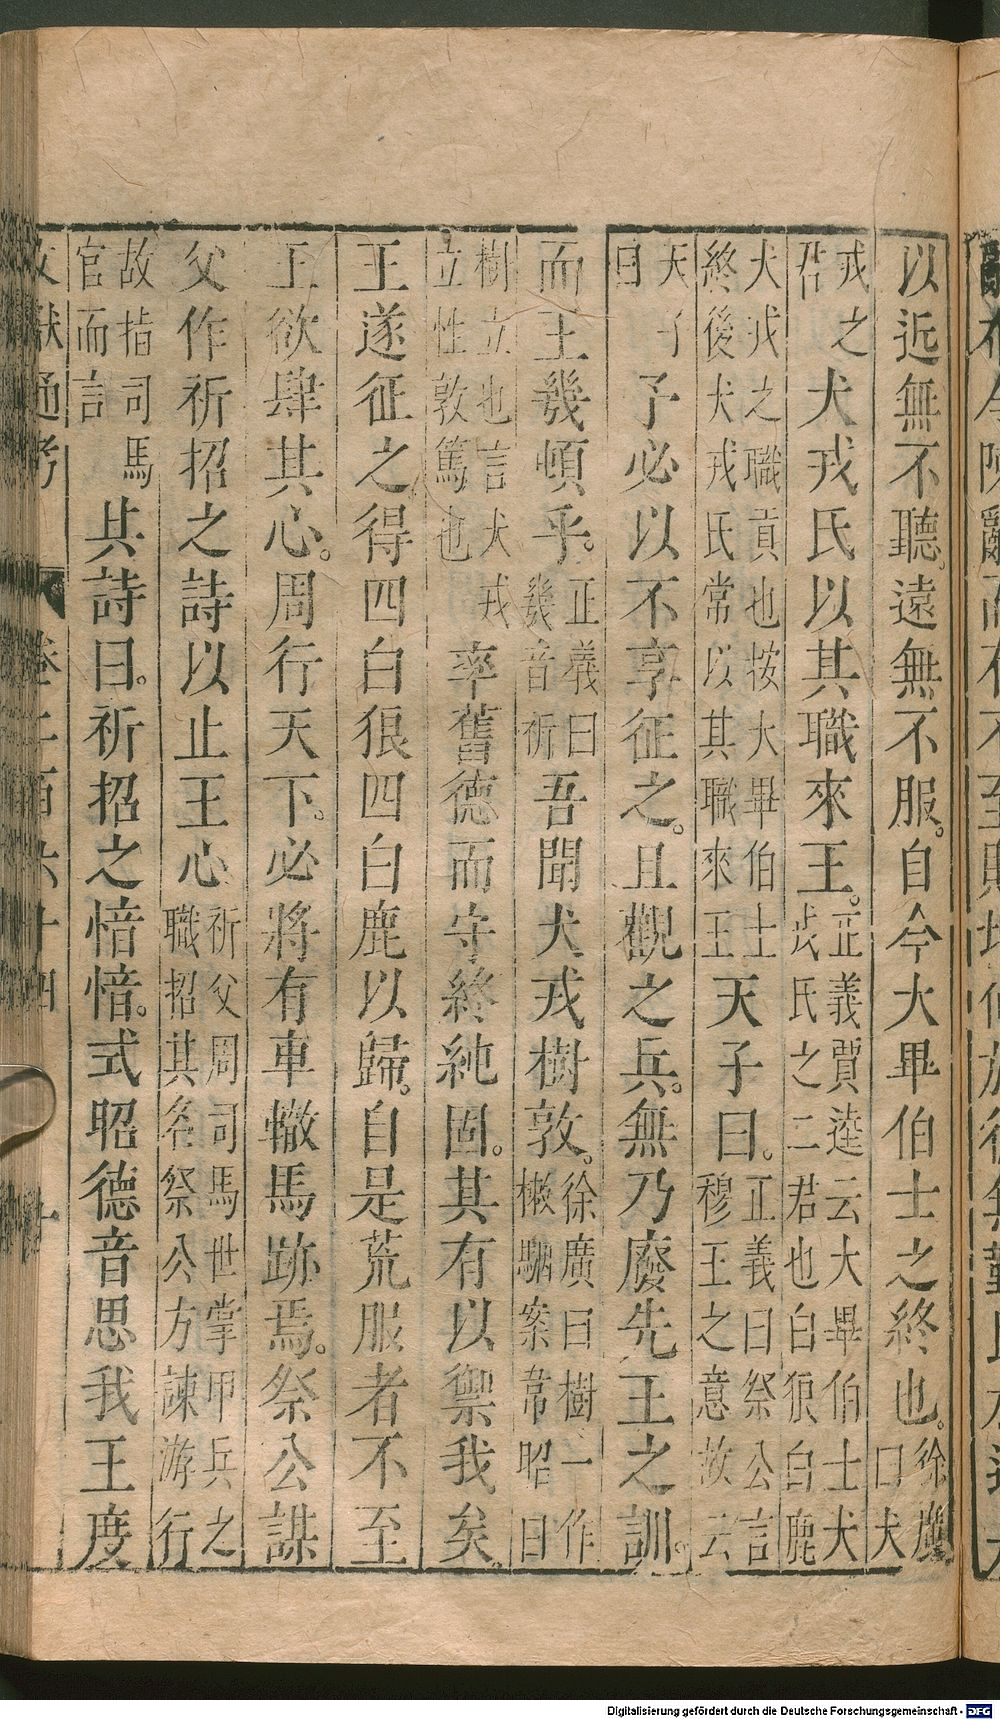 以近無不聽遠無不服。自今大畢伯士之終也。徐廣曰犬
戎之君犬戎氏以其職來王。正義賈逵云大畢伯士犬戎氏之二君也白狼白鹿
犬戎之職貢也按大畢伯士終後犬戎氏常以其職來王天子曰。正義曰祭公言穆王之意故云
天子曰予必以不享征之。且觀之兵。無乃廢先王之訓。
而王幾頓乎。正義曰幾音祈吾聞犬戎樹敦。徐廣曰樹一作樕駰案韋昭曰
樹立也言犬戎立性敦篤也率舊德而守終純固。其有以禦我矣。
王遂征之得四白狼四白鹿以歸。自是荒服者不至
王欲肆其心。周行天下。必將有車轍馬跡焉。祭公謀
父作祈招之詩以止王心祈父周司馬世掌甲兵之職招其名祭公方諫游行
故指司馬官而言其詩曰。祈招之愔愔。式昭德音思我王度
文獻通考 卷二百六十四 七
Digitalisierung gefördert durch die Deutsche Forschungsgemeinschaft - DFG